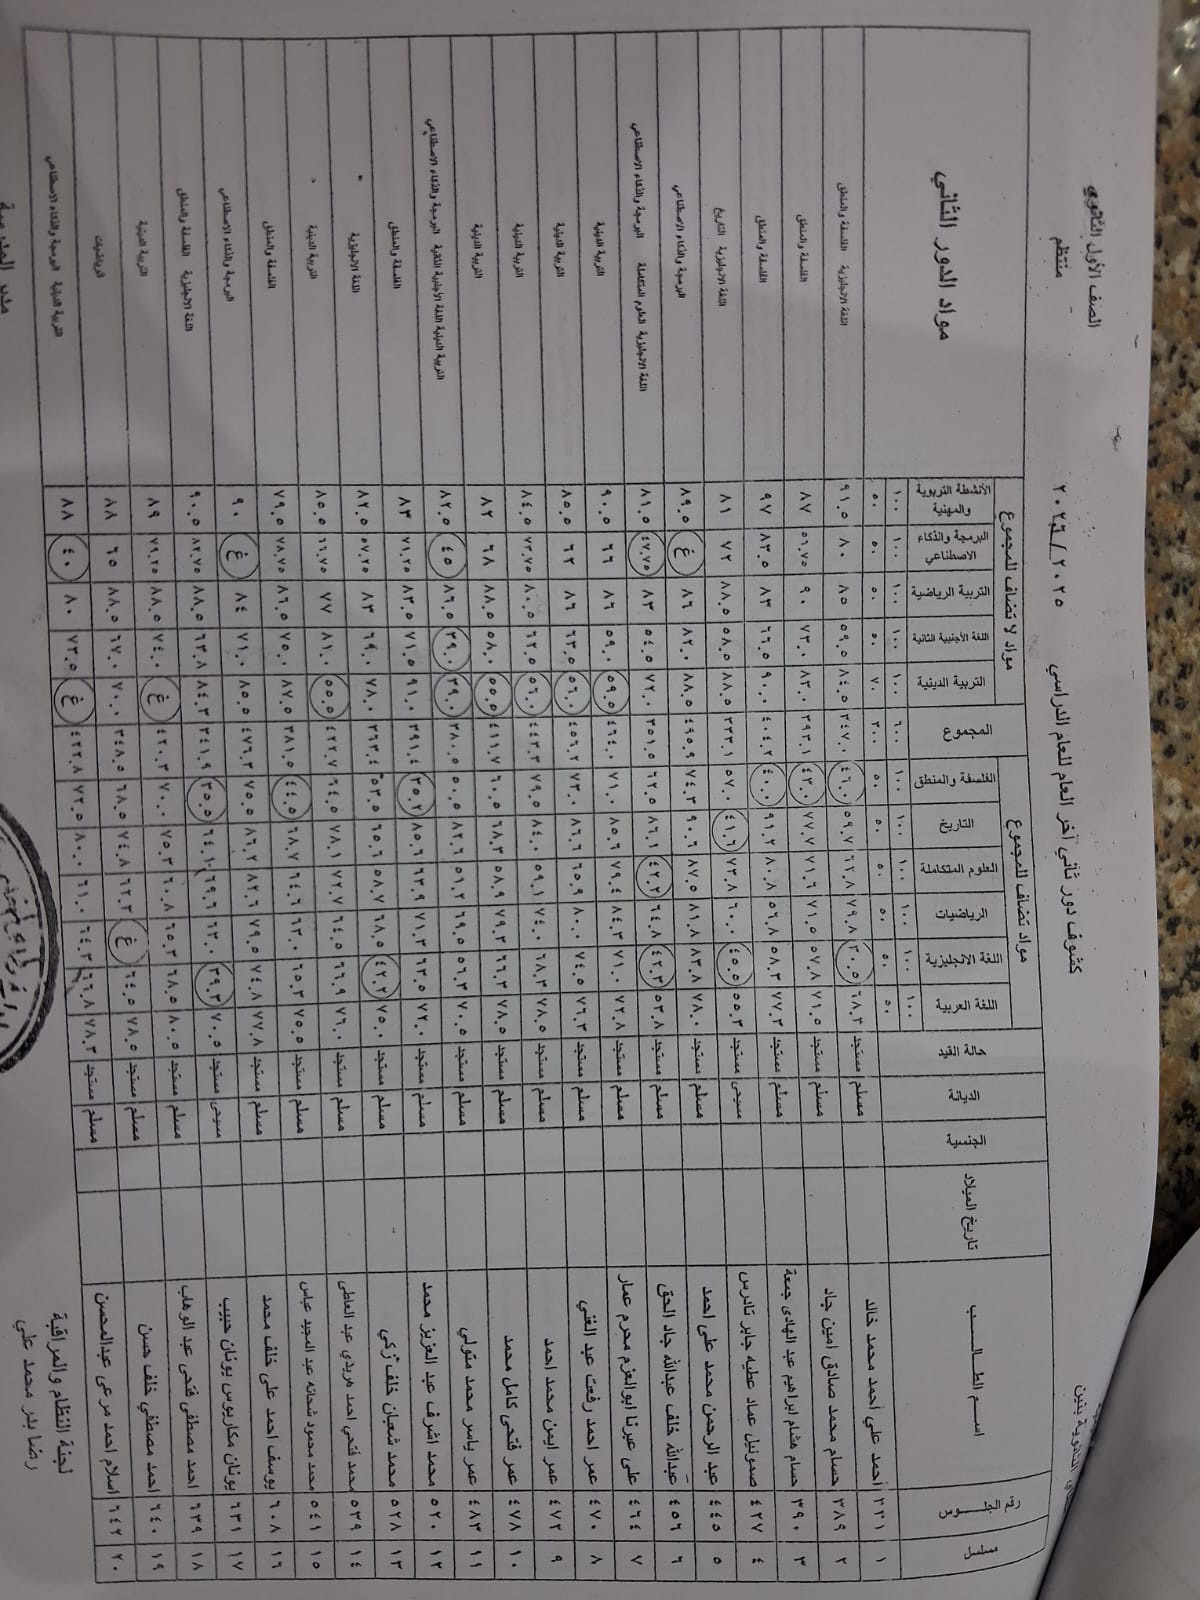 الصف الأول الثانوي
منتظم
كشوف دور ثاني أخر العام للعام الدراسي ٢٠٢٥ / ٢٠٢٦
الثانوية بنين
مسلسل رقم الجلوس اسم الطالب تاريخ الميلاد الجنسية الديانة حالة القيد مواد تضاف للمجموع مواد لا تضاف للمجموع مواد الدور الثاني
اللغة العربية اللغة الانجليزية الرياضيات العلوم المتكاملة التاريخ الفلسفة والمنطق المجموع التربية الدينية اللغة الأجنبية الثانية التربية الرياضية البرمجة والذكاء الاصطناعي الأنشطة التربوية والمهنية
١٠٠ ١٠٠ ١٠٠ ١٠٠ ١٠٠ ١٠٠ ٦٠٠ ١٠٠ ١٠٠ ١٠٠ ١٠٠ ١٠٠
٥٠ ٥٠ ٥٠ ٥٠ ٥٠ ٥٠ ٣٠٠ ٧٠ ٥٠ ٥٠ ٥٠ ٥٠
١ ٢٣١ أحمد علي أحمد محمد خالد مسلم مستجد ٦٨.٣ ٣٠.٥ ٧٩.٨ ٦٢.٨ ٥٩.٧ ٤٦.٠ ٣٤٧.٠ ٨٤.٥ ٥٩.٥ ٨٥ ٨٠ ٩١.٥ اللغة الانجليزية الفلسفة والمنطق
٢ ٣٨٩ حسام محمد صادق امين جاد مسلم مستجد ٧١.٥ ٥٧.٨ ٧١.٥ ٧١.٦ ٧٧.٧ ٤٣.٠ ٣٩٣.١ ٨٣.٠ ٧٣.٠ ٩٠ ٥٦.٧٥ ٨٧ الفلسفة والمنطق
٣ ٣٩٠ حسام هشام ابراهيم عبد الهادى جمعة مسلم مستجد ٧٧.٣ ٥٨.٣ ٥٦.٨ ٨٠.٨ ٩١.٢ ٤٠.٠ ٤٠٤.٢ ٩٠.٠ ٦٦.٥ ٨٣ ٨٣.٥ ٩٧ الفلسفة والمنطق
٤ ٤٢٧ صموئيل عماد عطيه جابر تادرس مسيحى مستجد ٥٥.٣ ٤٥.٥ ٦٠.٠ ٧٣.٨ ٤١.٦ ٥٧.٠ ٣٣٣.١ ٨٨.٥ ٥٨.٥ ٨٨.٥ ٧٢ ٨١ اللغة الانجليزية التاريخ
٥ ٤٤٥ عبد الرحمن محمد على احمد مسلم مستجد ٧٨.٠ ٨٣.٨ ٨١.٨ ٨٧.٥ ٩٠.٦ ٧٤.٣ ٤٩٥.٩ ٨٨.٥ ٨٢.٠ ٨٦ غ ٨٩.٥ البرمجة والذكاء الاصطناعي
٦ ٤٥٦ عبدالله خلف عبدالله جاد الحق مسلم مستجد ٥٣.٨ ٤٢.٣ ٦٤.٨ ٤٢.٢ ٨٦.١ ٦٢.٥ ٣٥١.٥ ٧٢.٠ ٥٤.٥ ٨٣ ٤٧.٧٥ ٨١.٥ اللغة الانجليزية العلوم المتكاملة البرمجة والذكاء الاصطناعي
٧ ٤٦٤ على عبرنا ابوالعزم محرم عمار مسلم مستجد ٧٢.٨ ٧١.٠ ٨٤.٣ ٧٩.٤ ٨٥.٦ ٧١.٠ ٤٦٤.٠ ٥٩.٥ ٥٩.٠ ٨٦ ٦٦ ٩٠.٥ التربية الدينية
٨ ٤٧٠ عمر احمد رفعت عبد الغني مسلم مستجد ٧٦.٣ ٧٤.٥ ٨٠.٠ ٦٥.٩ ٨٦.٦ ٧٣.٠ ٤٥٦.٢ ٥٦.٠ ٦٣.٥ ٨٦ ٦٣ ٨٥.٥ التربية الدينية
٩ ٤٧٢ عمر ايمن محمد احمد مسلم مستجد ٧٨.٥ ٦٨.٣ ٧٤.٠ ٥٩.١ ٨٤.٠ ٧٩.٥ ٤٤٣.٣ ٥٦.٠ ٦٢.٥ ٨٠.٥ ٧٣.٧٥ ٨٤.٥ التربية الدينية
١٠ ٤٧٨ عمر فتحى كامل محمد مسلم مستجد ٧٨.٥ ٦٦.٣ ٧٩.٣ ٥٨.٩ ٦٨.٣ ٦٠.٥ ٤١١.٧ ٥٥.٥ ٥٨.٠ ٨٨.٥ ٦٨ ٨٢ التربية الدينية
١١ ٤٨٣ عمر ياسر محمد متولي مسلم مستجد ٧٠.٥ ٥٦.٣ ٦٩.٥ ٥١.٢ ٨٢.٦ ٥٠.٥ ٣٨٠.٥ ٣٩.٠ ٣٩.٠ ٨٦.٥ ٤٥ ٨٢.٥ التربية الدينية اللغة الأجنبية الثانية البرمجة والذكاء الاصطناعي
١٢ ٥٢٠ محمد اشرف عبد العزيز محمد مسلم مستجد ٧٢.٠ ٦٣.٥ ٧١.٣ ٦٣.٩ ٨٥.٦ ٣٥.٢ ٣٩١.٤ ٩١.٠ ٧١.٥ ٨٣.٥ ٧١.٢٥ ٨٣ الفلسفة والمنطق
١٣ ٥٢٨ محمد شعبان خلف زكي مسلم مستجد ٧٥.٠ ٤٢.٢ ٦٨.٥ ٥٨.٧ ٦٥.٦ ٥٣.٥ ٣٦٣.٤ ٧٨.٠ ٦٩.٠ ٨٣ ٥٧.٢٥ ٨٢.٥ اللغة الانجليزية
١٤ ٥٣٩ محمد فتحي احمد هريدي عبد العاطى مسلم مستجد ٧٦.٠ ٦٦.٩ ٦٤.٥ ٧٢.٧ ٧٨.١ ٦٤.٥ ٤٢٢.٧ ٥٥.٥ ٨١.٠ ٧٧ ٦٦.٧٥ ٨٥.٥ التربية الدينية
١٥ ٥٤١ محمد محمود شحاته عبد المجيد عباس مسلم مستجد ٧٥.٥ ٦٥.٣ ٦٣.٠ ٦٤.٦ ٦٨.٧ ٤٤.٥ ٣٨١.٥ ٨٧.٥ ٧٥.٠ ٨٦.٥ ٧٨.٧٥ ٧٩.٥ الفلسفة والمنطق
١٦ ٦٠٨ يوسف احمد على خلف محمد مسلم مستجد ٧٧.٨ ٧٤.٨ ٧٩.٥ ٨٢.٦ ٨٦.٢ ٧٥.٥ ٤٧٦.٣ ٨٥.٥ ٧١.٠ ٨٤ غ ٩٠ البرمجة والذكاء الاصطناعي
١٧ ٦٣١ يونان مكاريوس يونان حبيب مسيحى مستجد ٧٠.٥ ٣٩.٣ ٦٣.٠ ٦٩.٦ ٦٤.١ ٣٥.٥ ٣٤١.٩ ٨٤.٣ ٦٣.٨ ٨٨.٥ ٨٢.٧٥ ٩٠.٥ اللغة الانجليزية الفلسفة والمنطق
١٨ ٦٣٩ احمد مصطفى فتحى عبد الوهاب مسلم مستجد ٨٠.٥ ٦٨.٥ ٦٥.٣ ٦٠.٨ ٧٥.٣ ٧٠.٠ ٤٢٠.٣ غ ٧٤.٠ ٨٨.٥ ٧٩.٢٥ ٨٩ التربية الدينية
١٩ ٦٤٠ احمد مصطفي خلف حسن مسلم مستجد ٧٨.٥ ٦٤.٥ غ ٦٢.٣ ٧٤.٨ ٦٨.٥ ٣٤٨.٥ ٧٠.٠ ٦٧.٠ ٨٨.٥ ٦٥ ٨٨ الرياضيات
٢٠ ٦٤٢ اسلام احمد مرعى عبدالمحسن مسلم مستجد ٧٨.٣ ٦٦.٨ ٦٤.٣ ٦١.٠ ٨٠.٠ ٧٢.٥ ٤٢٢.٨ غ ٧٣.٥ ٨٠ ٤٠ ٨٨ التربية الدينية البرمجة والذكاء الاصطناعي
لجنة النظام والمراقبة
رضا بدر محمد علي
مدير المدرسة